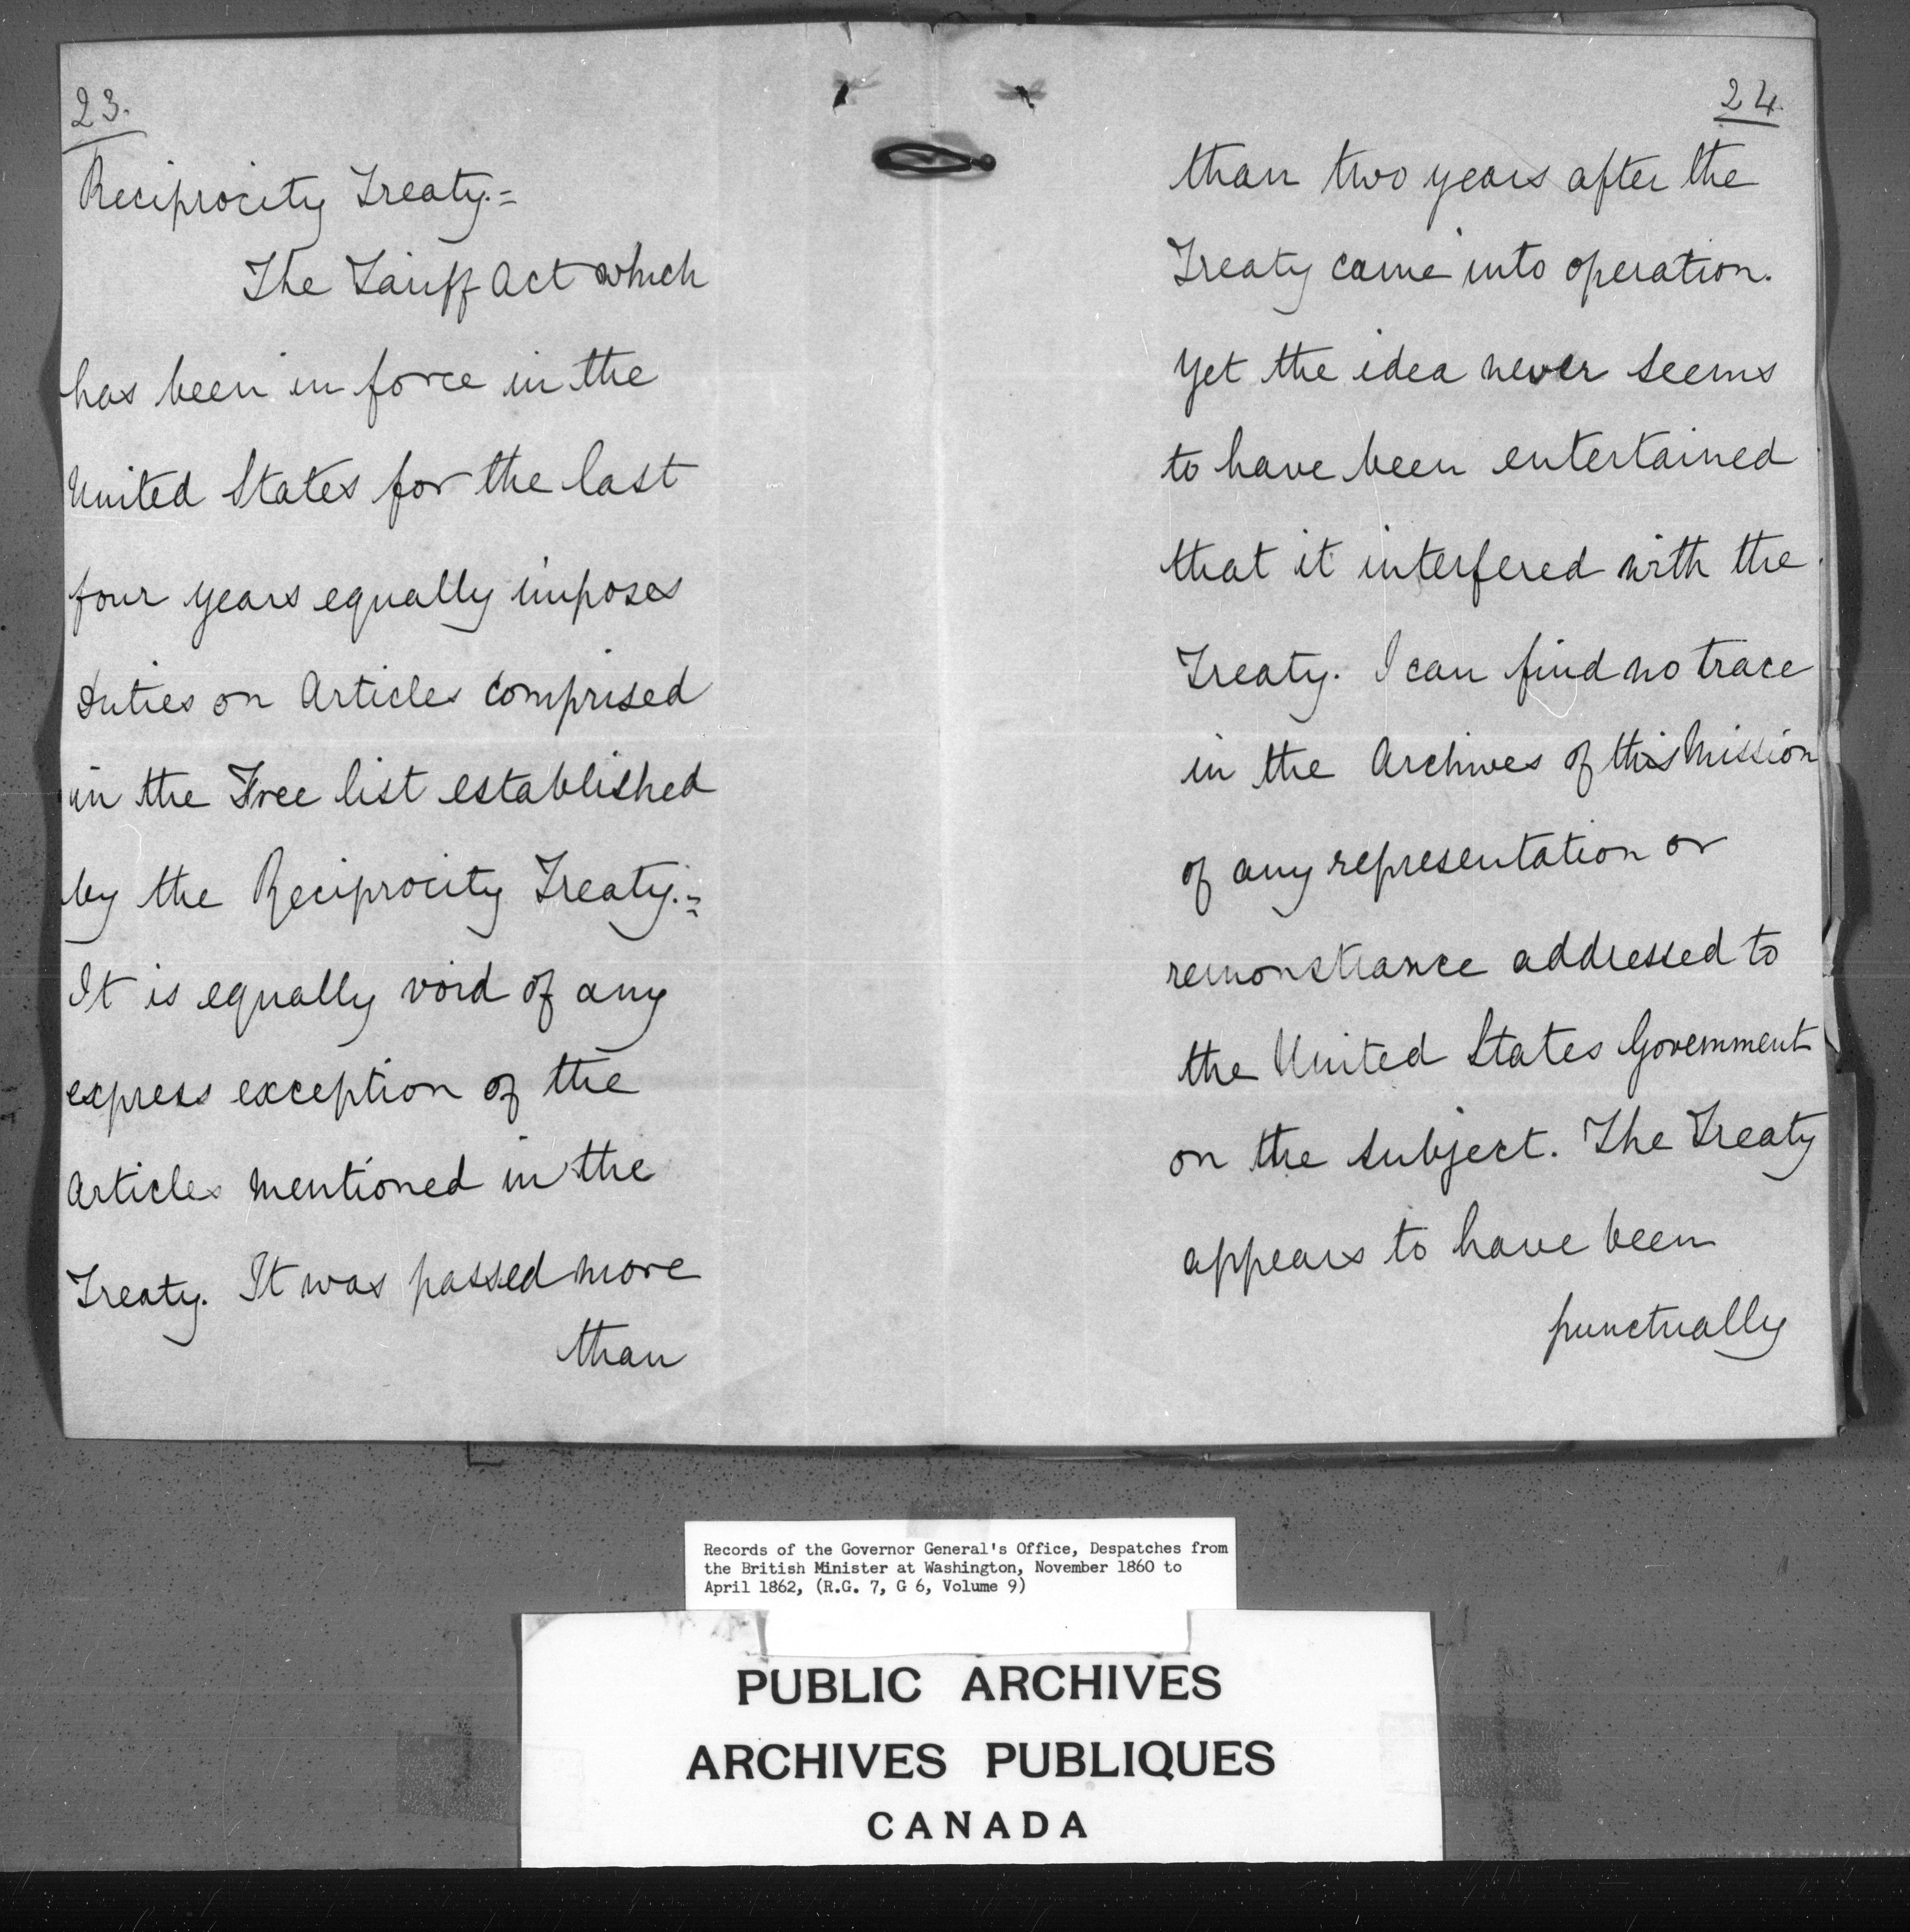 23.
Reciprocity Treaty.=
The Tariff Act which
has been in force in the
United States for the last
four years equally imposes
duties on Articles comprised
in the Free list established
by the Reciprocity Treaty.=
It is equally void of any
express exception of the
Articles mentioned in the
Treaty. It was passed more
than
24.
than two years after the
Treaty came into operation.
Yet the idea never seems
to have been entertained
that it interfered with the
Treaty. I can find no trace
in the Archives of this Mission
of any representation or
remonstrance addressed to
the United States Government
on the subject. The Treaty
appears to have been
punctually
Records of the Governor General's Office, Despatches from
the British Minister at Washington, November 1860 to
April 1862, (R.G. 7, G 6, Volume 9)
PUBLIC ARCHIVES
ARCHIVES PUBLIQUES
CANADA